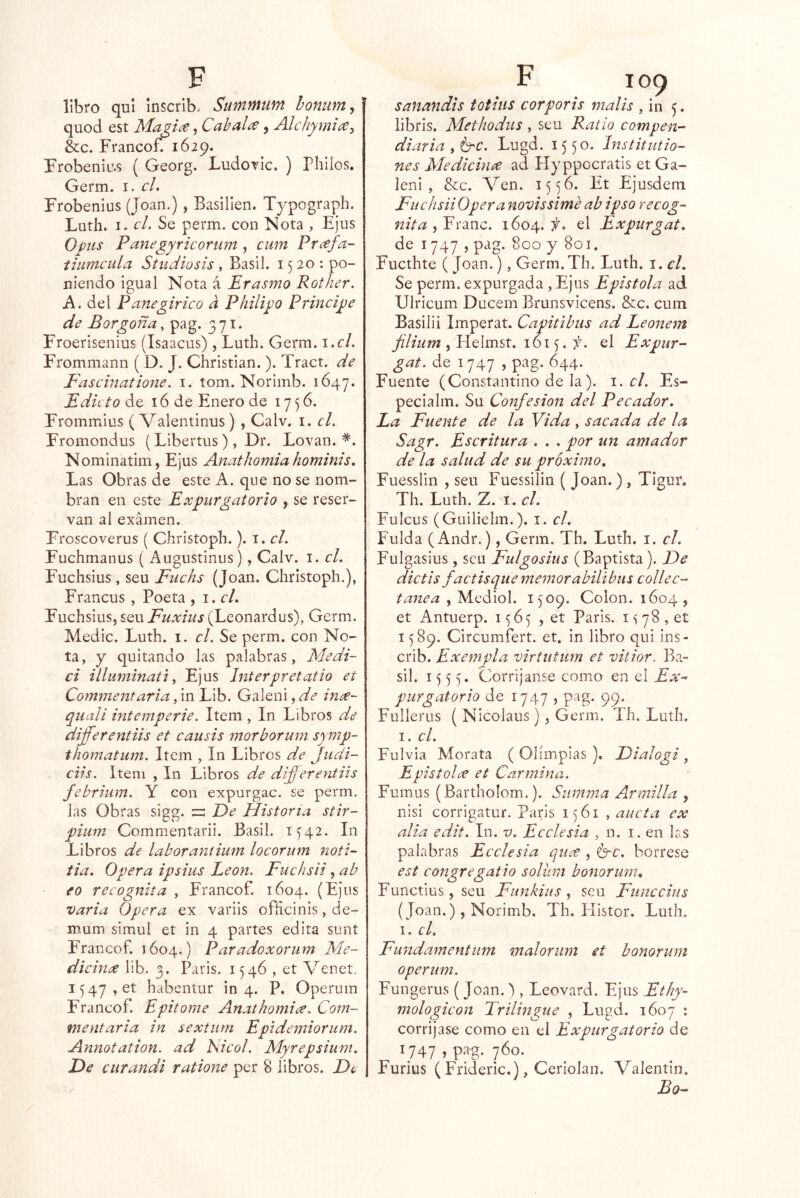 F
libro qui inscrib. Summum bonum,
quod est Magiæ, Cabalæ, Alchymiæ,
&c. Francof. 1629.
Frobenius ( Georg. Ludovic. ) Philos.
Germ. 1. cl.
Frobenius (Joan.) , Basilien. Typograph.
Luth. 1. cl. Se perm. con Nota , Ejus
Opus Panegyricorum , cum Præfa-
tiumcula Studiosis , Basil. 1520 : po-
niendo igual Nota á Erasmo Rother.
A. del Panegirico à Philipo Principe
de Borgoña, pag. 371.
Froerisenius (Isaacus) , Luth. Germ. 1.cl.
Frommann ( D. J. Christian. ). Tract. de
Fascinatione. 1. tom. Norimb. 1647.
Edicto de 16 de Enero de 1756.
Frommius ( Valentinus ) , Calv. 1. cl.
Fromondus ( Libertus ), Dr. Lovan. *.
Nominatim, Ejus Anathomia hominis.
Las Obras de este A. que no se nom-
bran en este Expurgatorio , se reser-
van al exâmen.
Froscoverus ( Christoph. ). 1. cl.
Fuchmanus ( Augustinus ) , Calv. 1. cl.
Fuchsius , seu Fuchs (Joan. Christoph.),
Francus , Poeta , 1. cl.
Fuchsius, seu Fuxius (Leonardus), Germ.
Medic. Luth. 1. cl. Se perm. con No-
ta, y quitando las palabras, Medi-
ci illuminati, Ejus Interpretatio et
Commentaria, in Lib. Galeni, de inæ-
quali intemperie. Item , In Libros de
differentiis et causis morborum symp-
thomatum. Item , In Libros de Judi-
ciis. Item , In Libros de differentiis
febrium. Y con expurgac. se perm.
las Obras sigg. = De Historia stir-
pium Commentarii. Basil. 1542. In
Libros de laborantium locorum noti-
tia. Opera ipsius Leon. Fuchsii , ab
eo recognita , Francof. 1604. (Ejus
varia Opera ex variis officinis, de-
mum simul et in 4 partes edita sunt
Francof. 1604.) Paradoxorum Me-
dicinæ lib. 3. Paris. 1546 , et Venet.
1547 , et habentur in 4. P. Operum
Francof. Epitome Anathomiæ. Com-
mentaria in sextum Epidemiorum.
Annotation. ad Nicol. Myrepsium.
De curandi ratione per 8 libros. De
F 109
sanandis totius corporis malis , in 5.
libris. Methodus , seu Ratio compen-
diaria , &c. Lugd. 1550. Institutio-
nes Medicinæ ad Hyppocratis et Ga-
leni , &c. Ven. 1556. Et Ejusdem
Fuchsii Opera novissimè ab ipso recog-
nita , Franc. 1604. ℣. el Expurgat.
de 1747 , pag. 800 y 801.
Fucthte ( Joan. ) , Germ. Th. Luth. 1. cl.
Se perm. expurgada , Ejus Epistola ad
Ulricum Ducem Brunsvicens. &c. cum
Basilii Imperat. Capitibus ad Leonem
filium , Helmst. 1615. ℣. el Expur-
gat. de 1747 , pag. 644.
Fuente (Constantino de la ). 1. cl. Es-
pecialm. Su Confesion del Pecador.
La Fuente de la Vida , sacada de la
Sagr. Escritura . . . por un amador
de la salud de su próximo.
Fuesslin , seu Fuessilin ( Joan. ) , Tigur.
Th. Luth. Z. 1. cl.
Fulcus (Guilielm.). 1. cl.
Fulda (Andr.) , Germ. Th. Luth. 1. cl.
Fulgasius , seu Fulgosius (Baptista ). De
dictis factisque memorabilibus collec-
tanea , Mediol. 1509. Colon. 1604 ,
et Antuerp. 1565 , et Paris. 1578 , et
1589. Circumfert. et. in libro qui ins-
crib. Exempla virtutum et vitior. Ba-
sil. 1555. Corrijanse como en el Ex-
purgatorio de 1747 , pag. 99.
Fullerus ( Nicolaus ) , Germ. Th. Luth.
1. cl.
Fulvia Morata ( Olímpias ). Dialogi ,
Epistolæ et Carmina.
Fumus ( Bartholom. ). Summa Armilla ,
nisi corrigatur. Paris 1561 , aucta ex
alia edit. In. v. Ecclesia , n. 1. en las
palabras Ecclesia quæ , &c. borrese
est congregatio solùm bonorum.
Functius , seu Funkius , seu Funccius
(Joan.) , Norimb. Th. Histor. Luth.
1. cl.
Fundamentum malorum et bonorum
operum.
Fungerus ( Joan. ) , Leovard. Ejus Ethy-
mologicon Trilingue , Lugd. 1607 :
corrijase como en el Expurgatorio de
1747 , pag. 760.
Furius (Frideric.), Ceriolan. Valentin.
Bo-